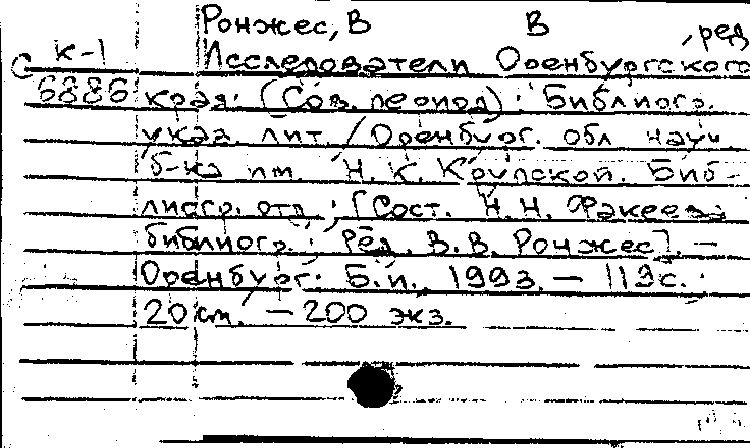 Ронжес, В В , ред
К-1
Исследователи Оренбургского
С
6886 края: (Сов. период): Библиогр.
указ. лит. / Оренбург. обл науч
б-ка им. Н. К. Крупской. Биб-
лиогр. отд.; [Сост. Н. Н. Факеева
библиогр.; Ред. В. В. Ронжес]. —
Оренбург: Б.и., 1993. — 119 с.;
20 см. — 200 экз.